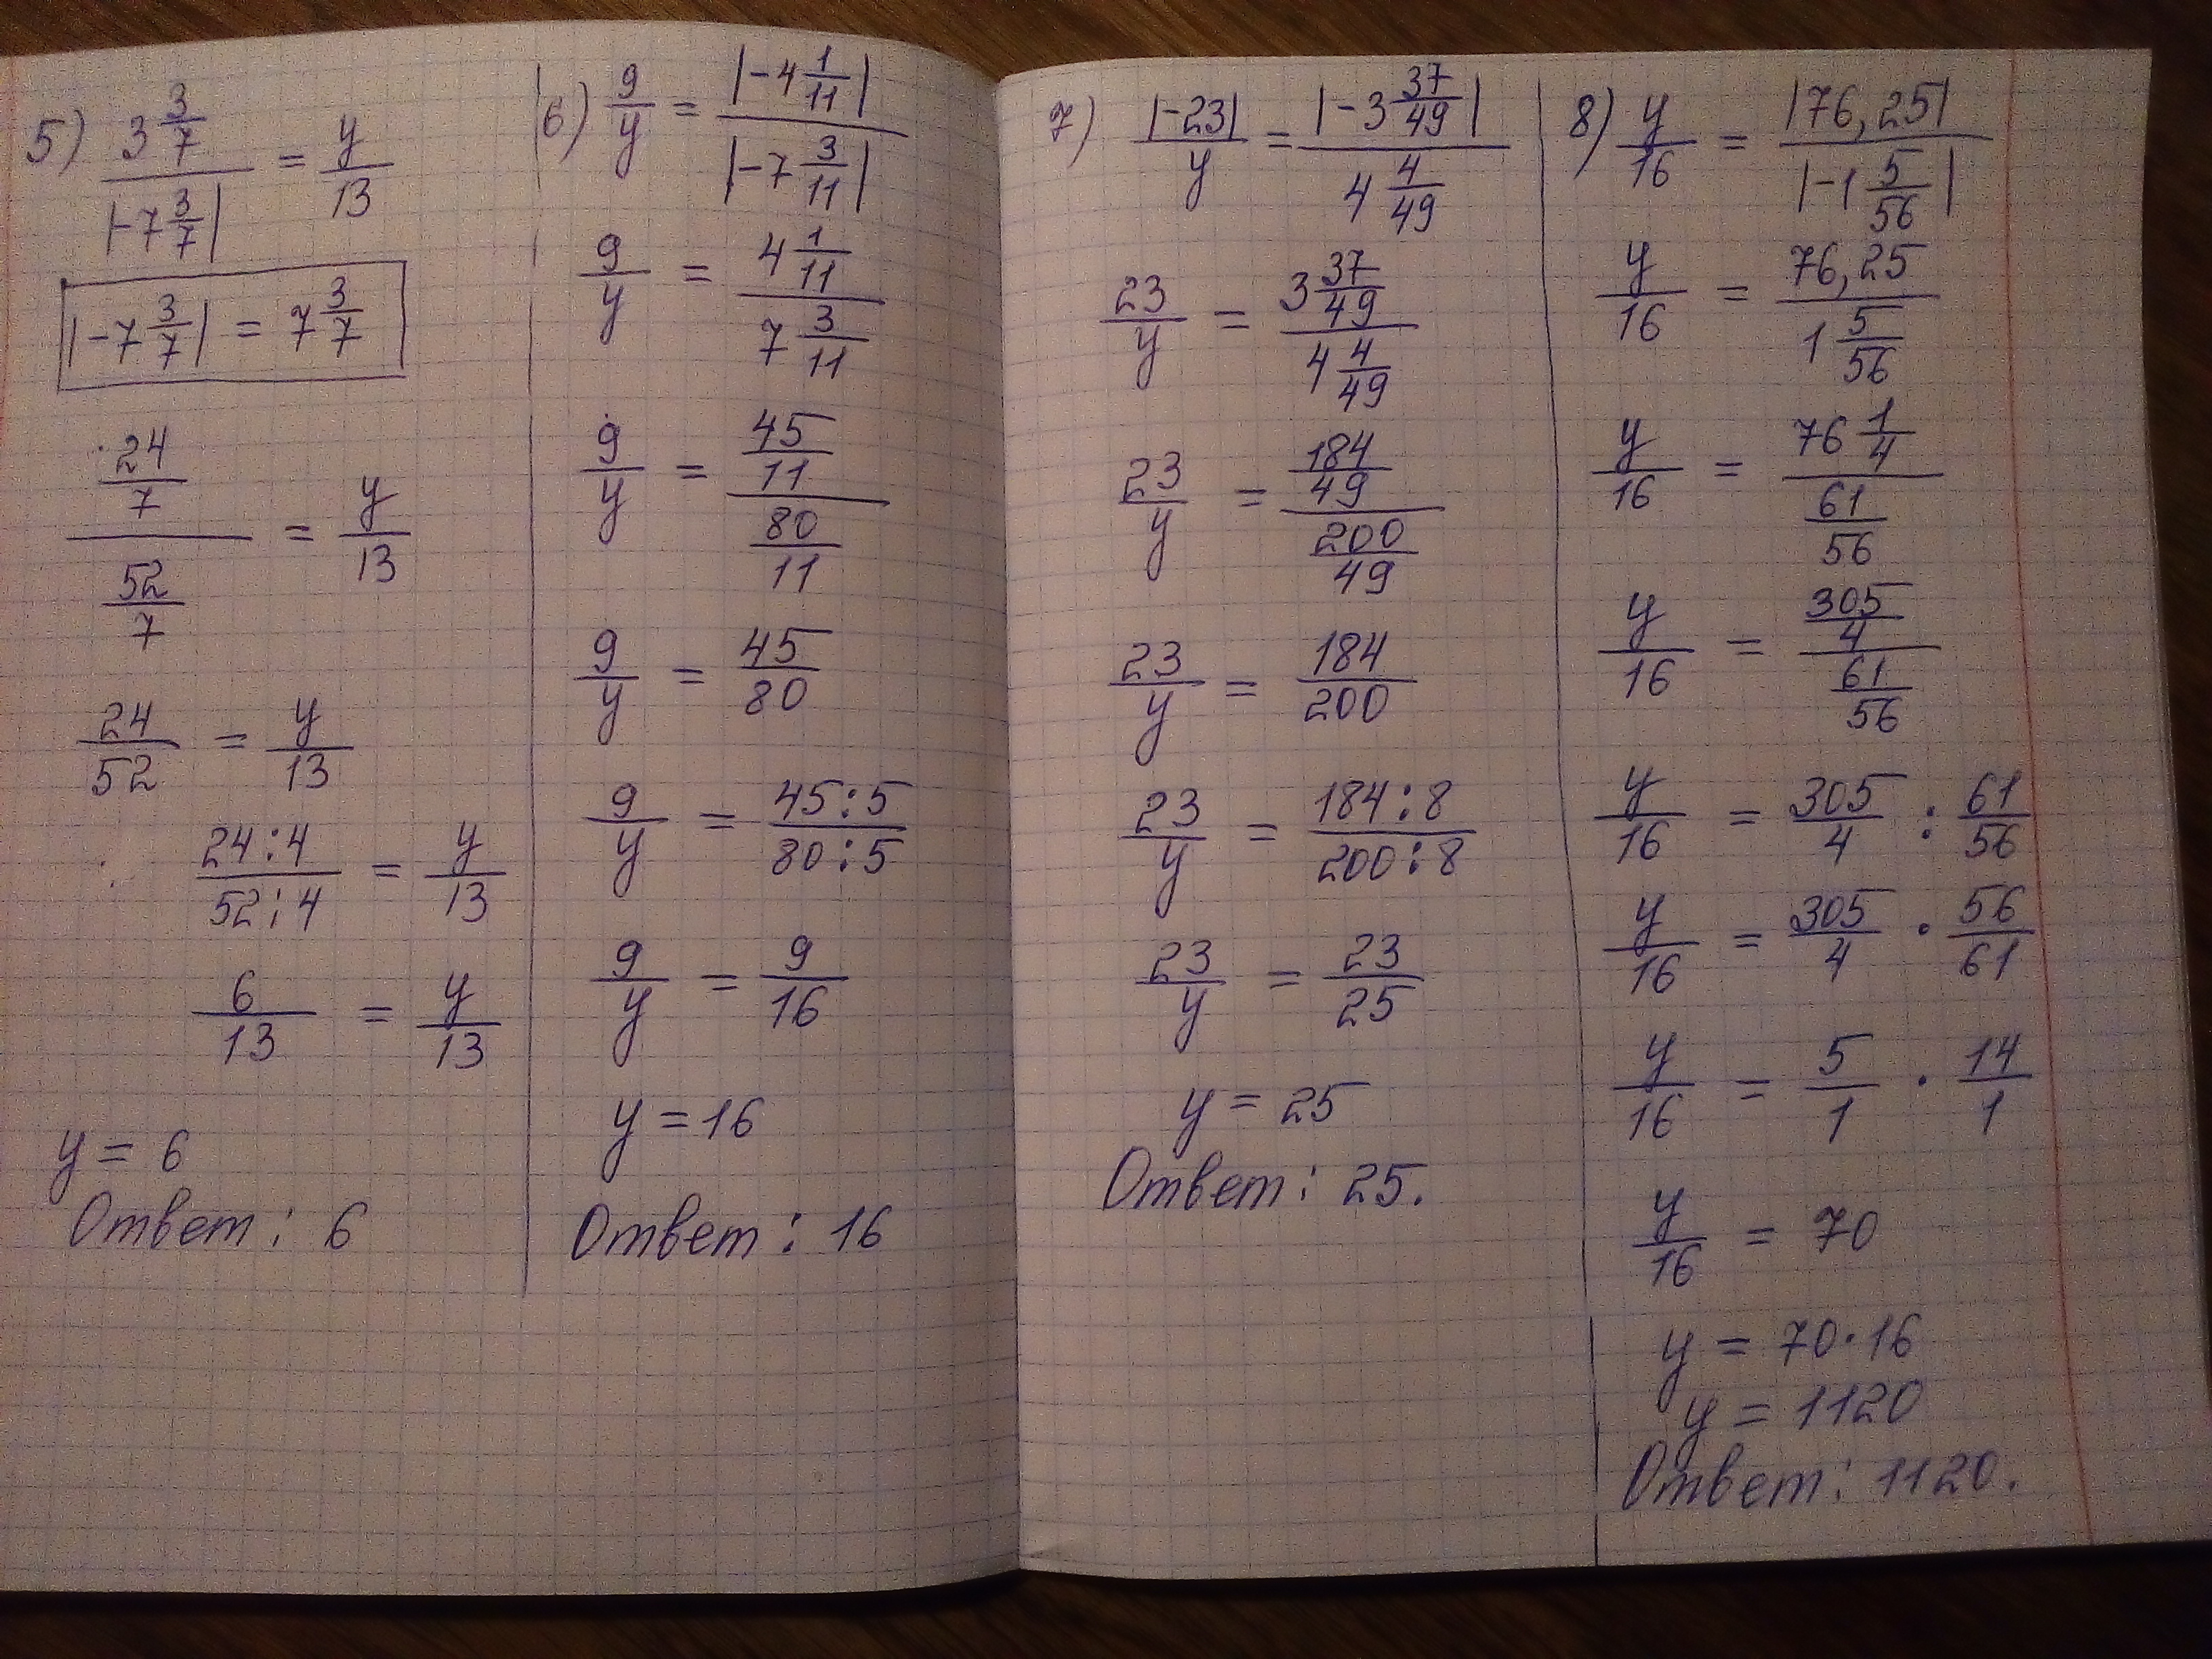 5) 3 3/7 / |-7 3/7| = y/13
|-7 3/7| = 7 3/7
24/7 / 52/7 = y/13
24/52 = y/13
24:4 / 52:4 = y/13
6/13 = y/13
y = 6
Ответ: 6
6) 9/y = |-4 1/11| / |-7 3/11|
9/y = 4 1/11 / 7 3/11
9/y = 45/11 / 80/11
9/y = 45/80
9/y = 45:5 / 80:5
9/y = 9/16
y = 16
Ответ: 16
7) |-23|/y = |-3 37/49| / 4 4/49
23/y = 3 37/49 / 4 4/49
23/y = 184/49 / 200/49
23/y = 184/200
23/y = 184:8 / 200:8
23/y = 23/25
y = 25
Ответ: 25.
8) y/16 = |76,25| / |-1 5/56|
y/16 = 76,25 / 1 5/56
y/16 = 76 1/4 / 61/56
y/16 = 305/4 / 61/56
y/16 = 305/4 : 61/56
y/16 = 305/4 · 56/61
y/16 = 5/1 · 14/1
y/16 = 70
y = 70·16
y = 1120
Ответ: 1120.